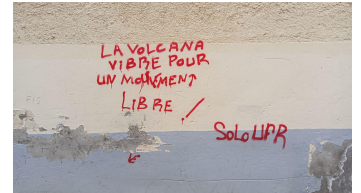 LA VOLCANA
VIBRE POUR
UN MOUVEMENT
LIBRE
SOLO UPR